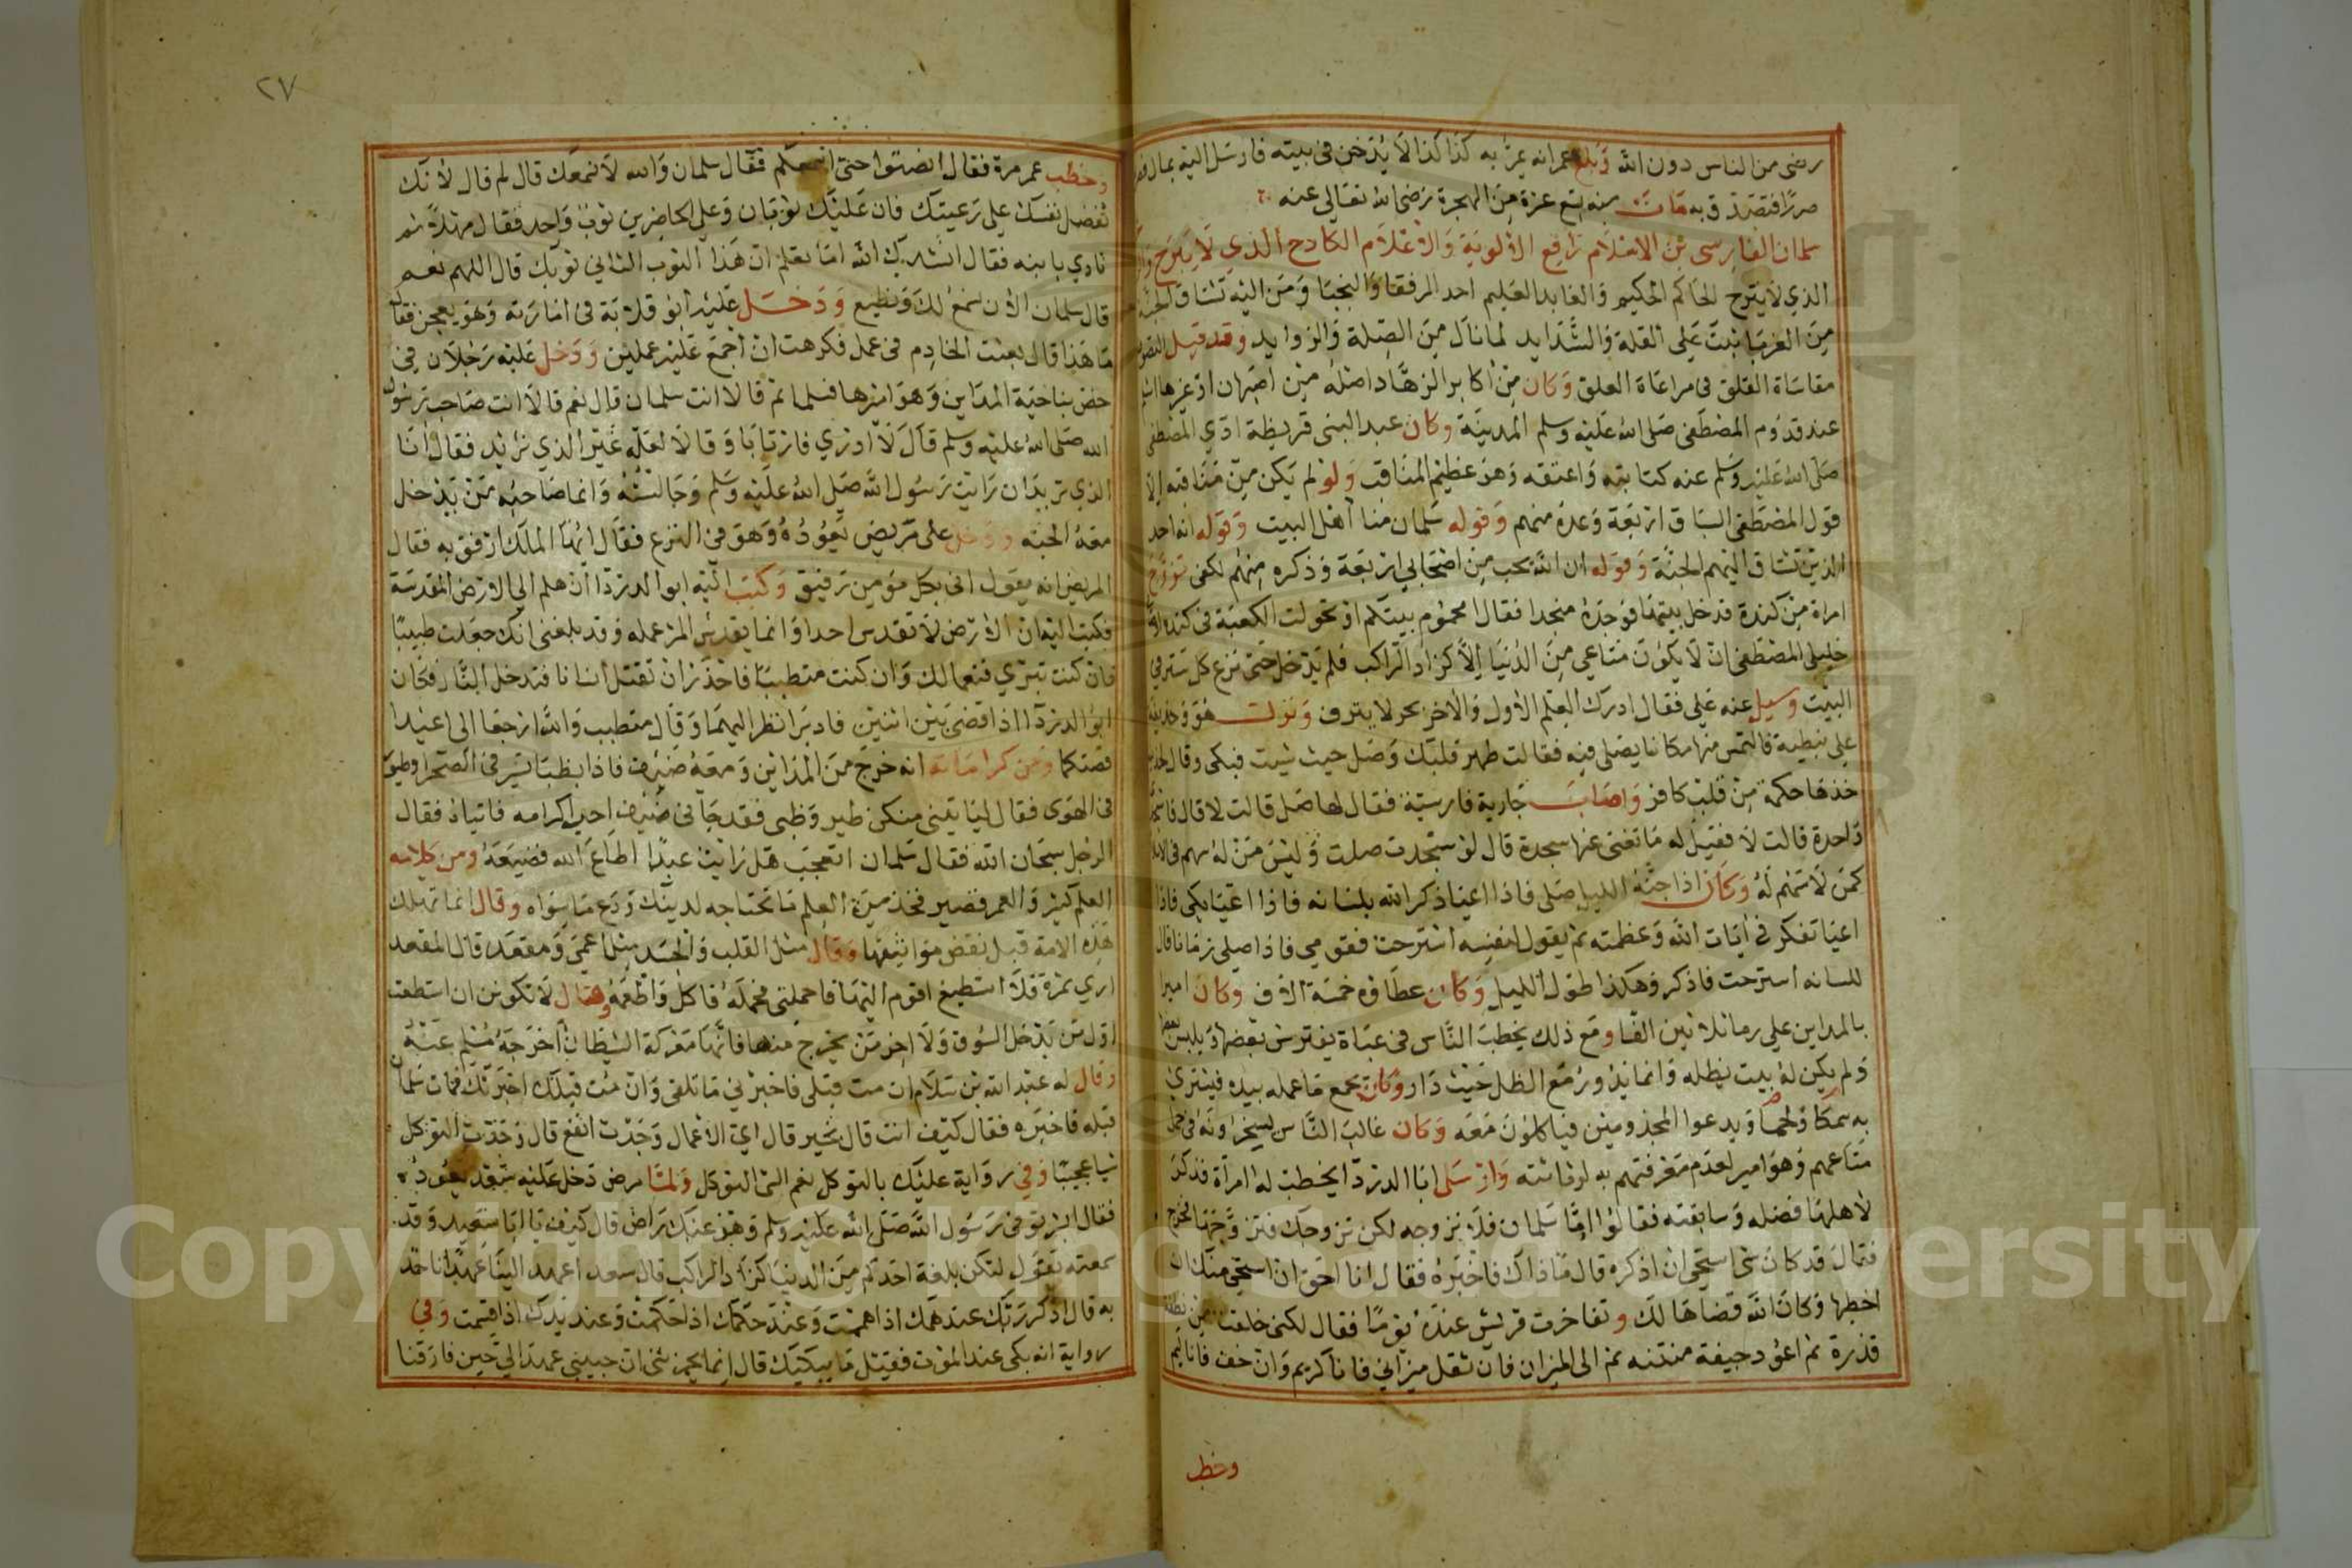 رضى من الناس دون الله وبلغ عمر انه يمر به كذا كذا لا يدخن فى بيته فارسل اليه بمال فصر
صررا فتصدق به مات سنه تسع عشرة من الهجرة رضى الله تعالى عنه
سلمان الفارسى بن الاسلام رافع الالوية والاعلام الكادح الذي لا يبرح و
الذي لا يترح الحاكم الحكيم والعابد العليم احد الرفقا والنجبا ومن اليه تشتاق الجنة
من الغربا ثبت على القلة والشدايد لما نال من الصلة والزوايد وقد قيل التصوف
مقاساة القلق فى مراعاة العلق وكان من اكابر الزهاد اصله من اصبهان او غيرها
عند قدوم المصطفى صلى الله عليه وسلم المدينة وكان عبد البنى قريظة ادى المصطفى
صلى الله عليه وسلم عنه كتابته واعتقه وهو عظيم المناقب ولو لم يكن من مناقبه الا
قول المصطفى السباق اربعة وعده منهم وقوله سلمان منا اهل البيت وقوله انه احد
الذين تشتاق اليهم الجنة وقوله ان الله يحب من اصحابي اربعة وذكره منهم لكفى تزوج
امراة من كندة فدخل بيتها فوجده منجدا فقال امحموم بيتكم او تحولت الكعبة فى كنده
خليلى المصطفى ان لا يكون متاعي من الدنيا الا كزاد الراكب فلم يدخل حتى نزع كل ستر في
البيت وسيل عنه علي فقال ادرك العلم الاول والاخر بحر لا ينزف ونزلت هو وحذيفة
على نبطية فالتمس منها مكانا يصلى فيه فقالت طهر قلبك وصل حيث شيت فبكى وقال
خذها حكمة من قلب كافر واصاب جارية فارسية فقال لها صلى قالت لا قال فاسجدي
واحدة قالت لا فقيل له ما تغنى عنها سجدة قال لو سجدت صلت وليس من له سهم فى الاسلام
كمن لا سهم له وكان اذا جنه الليل صلى فاذا اعيا ذكر الله بلسانه فاذا اعيا بكى فاذا
اعيا تفكر فى ايات الله وعظمته ثم يقول لنفسه استرحت فقومي فاذا صلى زمانا قال
للسانه استرحت فاذكر وهكذا طول الليل وكان عطاوه خمسة الاف وكان اميرا
بالمداين على زها ثلاثين الفا ومع ذلك يخطب الناس فى عباة يفترش بعضها ويلبس بعضها
ولم يكن له بيت يظله وانما يدور مع الظل حيث دار وكان يجمع ما عمله بيده فيشتري
به سمكا ولحما ويدعوا المجذومين فياكلون معه وكان غالب الناس يسخرونه فى حمل
متاعهم وهو امير لعدم معرفتهم به لرثاثته وارسل ابا الدردا يخطب له امراة فذكر
لاهلها فضله وسابقته فقالوا اما سلمان فلا نزوجه لكن نزوجك فتزوجها فخرج
فقال قد كان شى استحى ان اذكره قال ما ذاك فاخبره فقال انا احق ان استحى منك ان
اخطبها وكان الله قضاها لك وتفاخرت قريش عنده يوما فقال لكنى خلقت من نطفة
قذرة ثم اعود جيفة منتنه ثم الى الميزان فان ثقل ميزاني فانا كريم وان خف فانا لئيم
وخطب
٢٧
وخطب عمر مرة فقال انصتوا حتى اسمعكم فقال سلمان والله لا نسمعك قال لم قال لانك
تفضل نفسك على رعيتك فان عليك ثوبان وعلى الحاضرين ثوب واحد فقال مهلا ثم
نادي يا بنه فقال انشدك الله اما تعلم ان هذا الثوب الثاني ثوبك قال اللهم نعم
قال سلمان الان نسمع لك ونطيع ودخل عليه ابو قلابة فى امارته وهو يعجن فقال
ما هذا قال بعثت الخادم فى عمل فكرهت ان اجمع عليه عملين ودخل عليه رجلان فى
خص بناحية المداين وهو اميرها فسلما ثم قالا انت سلمان قال نعم قالا انت صاحب رسول
الله صلى الله عليه وسلم قال لا ادري فارتابا وقالا لعله غير الذي نريد فقال انا
الذي تريدان رايت رسول الله صلى الله عليه وسلم وجالسته وانما صاحبه من يدخل
معه الجنه ودخل على مريض يعوده وهو فى النزع فقال ايها الملك ارفق به فقال
المريض انه يقول اني بكل مؤمن رفيق وكتب اليه ابو الدردا ان هلم الى الارض المقدسة
فكتب اليه ان الارض لا تقدس احدا وانما يقدس المرء عمله وقد بلغنى انك جعلت طبيبا
فان كنت تبري فنعما لك وان كنت متطببا فاحذر ان تقتل انسانا فتدخل النار فكان
ابو الدردا اذا قضى بين اثنين فادبرا نظر اليهما وقال متطبب والله ارجعا الى اعيدا
قصتكما ومن كراماته انه خرج من المداين ومعه ضيف فاذا بظبا تسير فى الصحرا وطيور
فى الهوى فقال لياتينى منكن طير وظبى فقد جانى ضيف احب اكرامه فاتياه فقال
الرجل سبحان الله فقال سلمان اتعجب هل رايت عبدا اطاع الله فضيعه ومن كلامه
العلم كثير والعمر قصير فخذ من العلم ما تحتاجه لدينك ودع ما سواه وقال انما تهلك
هذه الامة قبل نقض مواثيقها وقال مثل القلب والجسد مثل اعمى ومقعد قال المقعد
ارى ثمرة فلا استطيع اقوم اليها فاحملنى فحمله فاكل واطعمه وقال لا تكونن ان استطعت
اول من يدخل السوق ولا اخر من يخرج منها فانها معركة الشيطان اخرجه مسلم عنه
وقال له عبد الله بن سلام ان مت قبلى فاخبرني ما تلقى وان مت قبلك اخبرتك فمات سلمان
قبله فاخبره فقال كيف انت قال بخير قال اي الاعمال وجدت انفع قال وجدت التوكل
شيا عجيبا وفي رواية عليك بالتوكل نعم الشى التوكل ولما مرض دخل عليه سعد يعوده
فقال ابشر توفى رسول الله صلى الله عليه وسلم وهو عنك راض قال كيف يا ابا سعيد وقد
سمعته يقول لتكن بلغة احدكم من الدنيا كزاد الراكب قال سعد اعهد الينا عهدا ناخذ
به قال اذكر ربك عند همك اذا هممت وعند حكمك اذا حكمت وعند يدك اذا قسمت وفي
رواية انه بكى عند الموت فقيل ما يبكيك قال انما يحزننى ان حبيبي عهد الي حين فارقنا